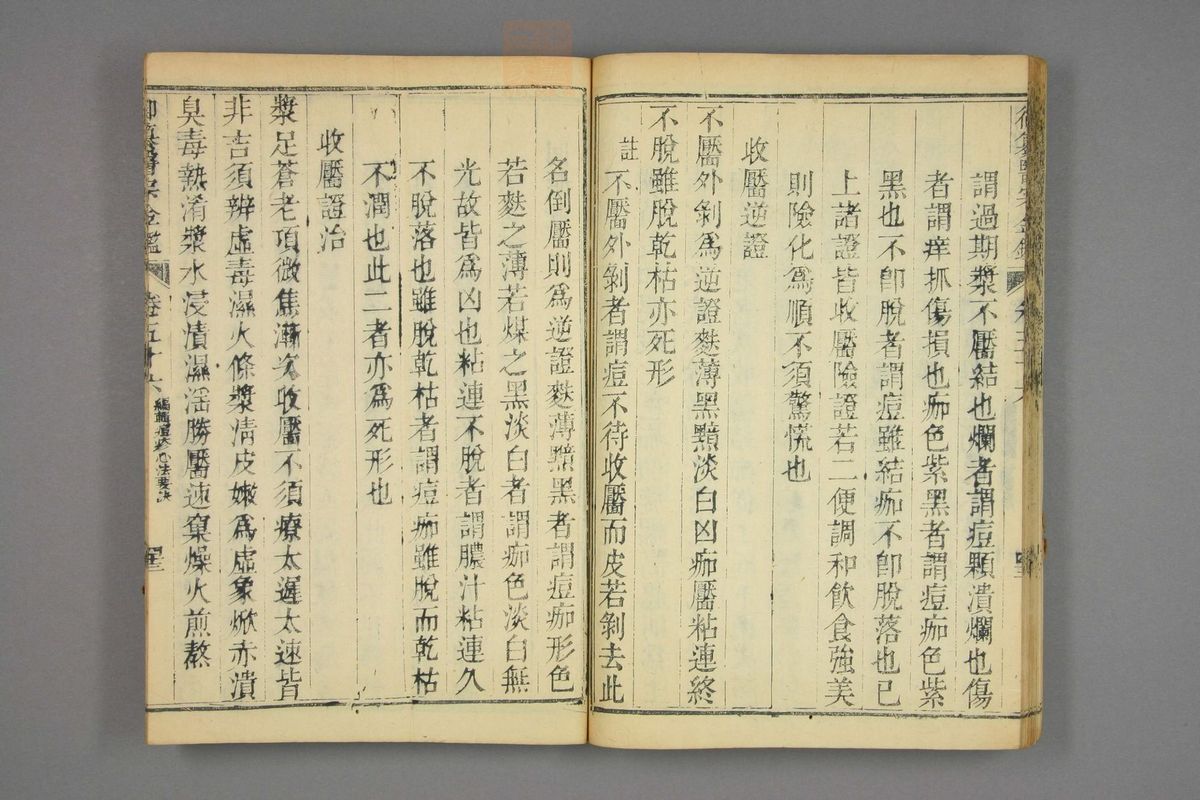 御纂醫宗金鑑 卷五十六
謂過期漿不靨結也爛者謂痘顆潰爛也傷
者謂痒抓傷損也痂色紫黑者謂痘痂色紫
黑也不卽脫者謂痘雖結痂不卽脫落也已
上諸證皆收靨險證若二便調和飲食強美
則險化爲順不須驚慌也
收靨逆證
不靨外剝爲逆證麩薄黑黯淡白凶痂靨粘連終
不脫雖脫乾枯亦死形
註不靨外剝者謂痘不待收靨而皮若剝去此
名倒靨則爲逆證麩薄黯黑者謂痘痂形色
若麩之薄若煤之黑淡白者謂痂色淡白無
光故皆爲凶也粘連不脫者謂膿汁粘連久
不脫落也雖脫乾枯者謂痘痂雖脫而乾枯
不潤也此二者亦爲死形也
收靨證治
漿足蒼老頂微焦漸次收靨不須療太遲太速皆
非吉須辨虛毒濕火條漿清皮嫩爲虛象焮赤潰
臭毒熱淆漿水浸漬濕淫勝靨速窠燥火煎熬
御纂醫宗金鑑 卷五十六 編輯痘疹心法要訣